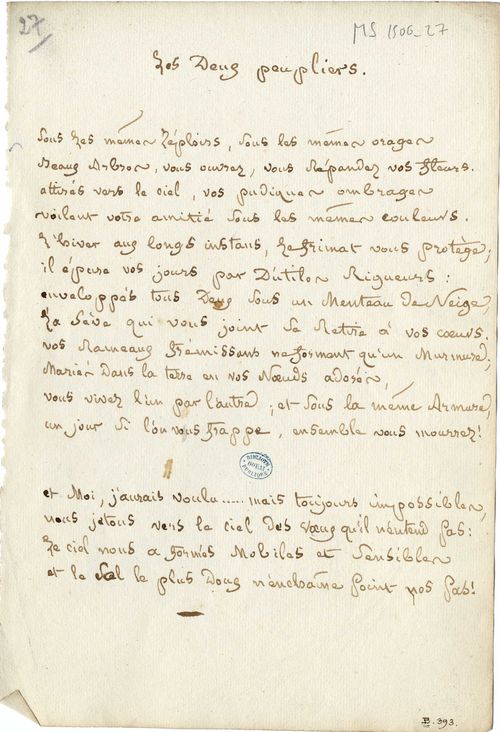 27
MS 1506-27
Les Deux peupliers.
Sous Les mêmes Zéphirs, sous les mêmes orages
Beaux Arbres, vous ouvrez, vous Répandez vos fleurs.
attirés vers le ciel, vos pudiques ombrages
voilent votre amitié sous les mêmes couleurs.
L'hiver aux longs instans, Le frimat vous protège;
il épure vos jours par D'utiles Rigueurs:
enveloppés tous Deux sous un Menteau de Neige,
La Sève qui vous joint se Retire à vos cœurs,
vos Rameaux frémissans ne forment qu'un Murmure,
Mariés Dans la terre en vos Nœuds adorés,
vous vivez l'un par l'autre; et sous la même Armure,
un jour si l'on vous frappe, ensemble vous mourrez!
et Moi, j'aurais voulu..... mais toujours impossibles,
nous jetons vers le ciel des vœux qu'il n'entend pas:
Le ciel nous a formés Mobiles et Sensibles
et le Sol le plus Doux n'enchaîne point nos pas!
BIBLIOTH. DOUAI PUBLIQUE
B. 393.